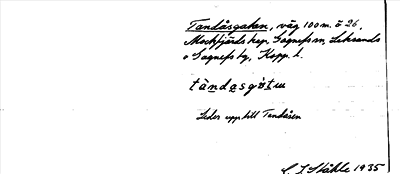 Tandåsgatan, väg 100 m. ö 26,
Mockfjärds kap. Gagnefs sn, Leksands
o Gagnefs tg, Kopp. l.
tàndasgàtu
Leder upp till Tandåsen
C. I. Ståhle 1935